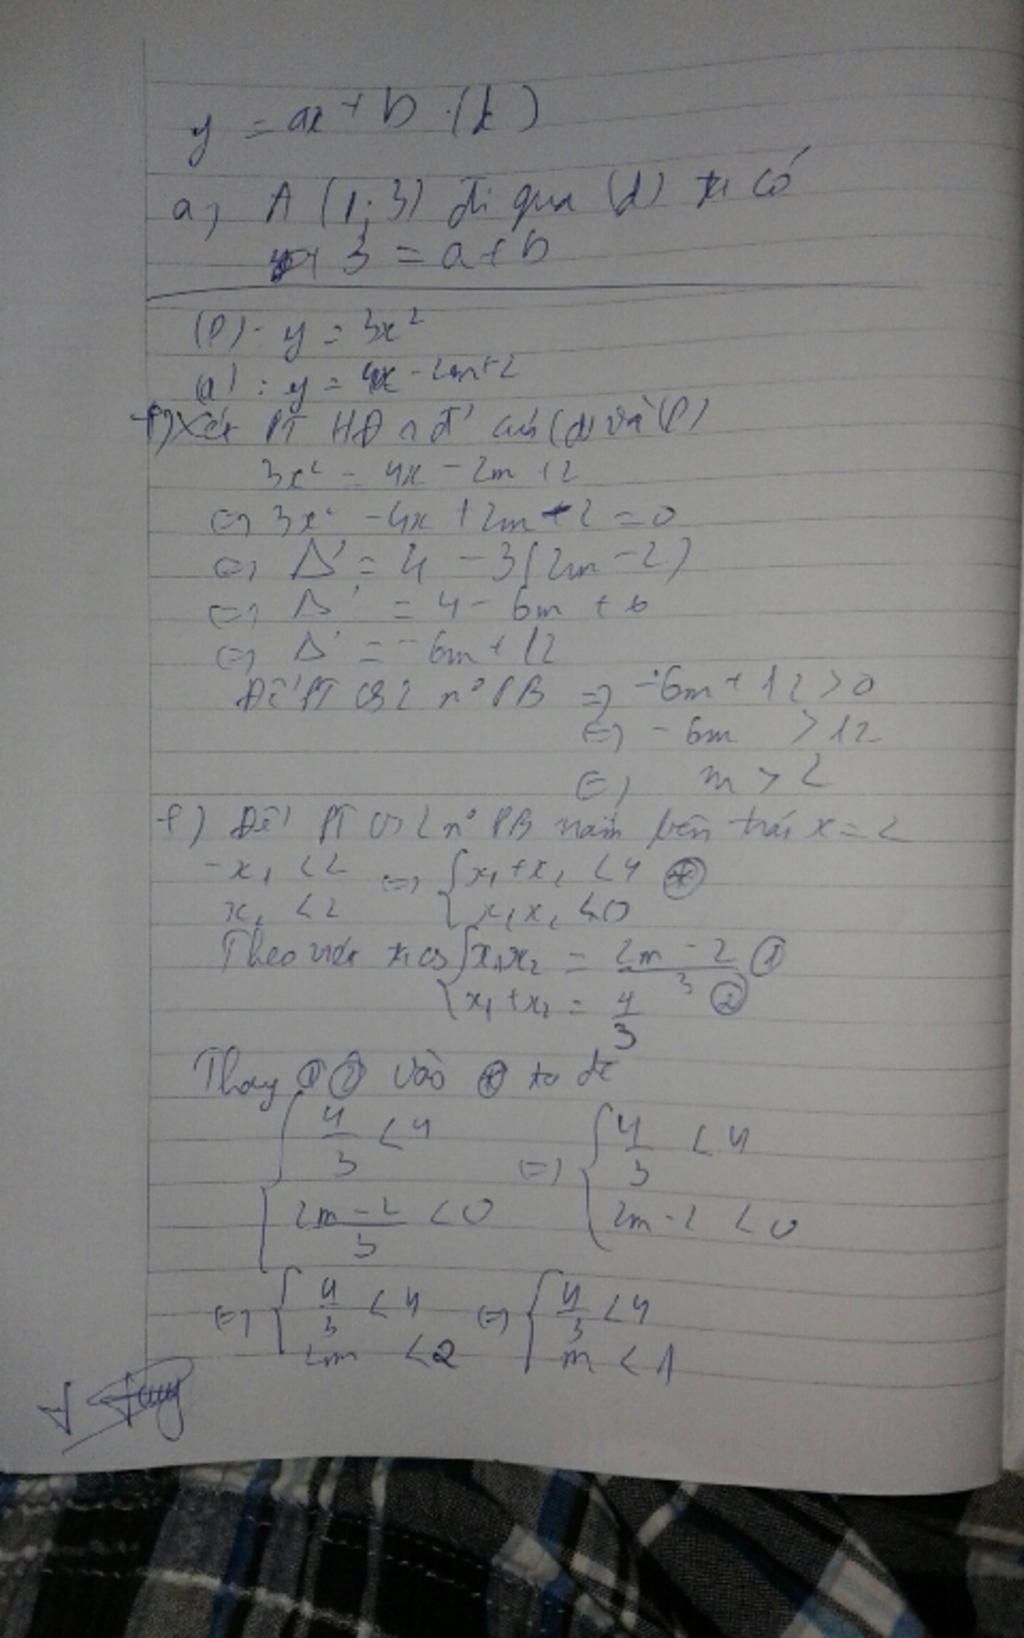 y = ax + b (d)
a, A (1; 3) đi qua (d) ta có
3 = a + b
(P): y = 3x²
(d): y = 4x - 2m + 2
Xét PT HĐ n đ' của (d) và (P)
3x² = 4x - 2m + 2
<=> 3x² - 4x + 2m - 2 = 0
<=> Δ' = 4 - 3(2m - 2)
<=> Δ' = 4 - 6m + 6
<=> Δ' = -6m + 12
Để PT có 2 n⁰ PB => -6m + 12 > 0
<=> -6m > 12
<=> m > 2
f) Để PT có 2 n⁰ PB nằm bên trái x = 2
- x₁ < 2 <=> { x₁ + x₂ < 4 (*)
x₂ < 2 { x₁x₂ < 0
Theo viét ta có { x₁x₂ = (2m - 2)/3 ①
{ x₁ + x₂ = 4/3 ②
Thay ① ② vào (*) ta đc
{ 4/3 < 4 <=> { 4/3 < 4
{ (2m - 2)/3 < 0 { 2m - 2 < 0
<=> { 4/3 < 4 <=> { 4/3 < 4
2m < 2 { m < 1